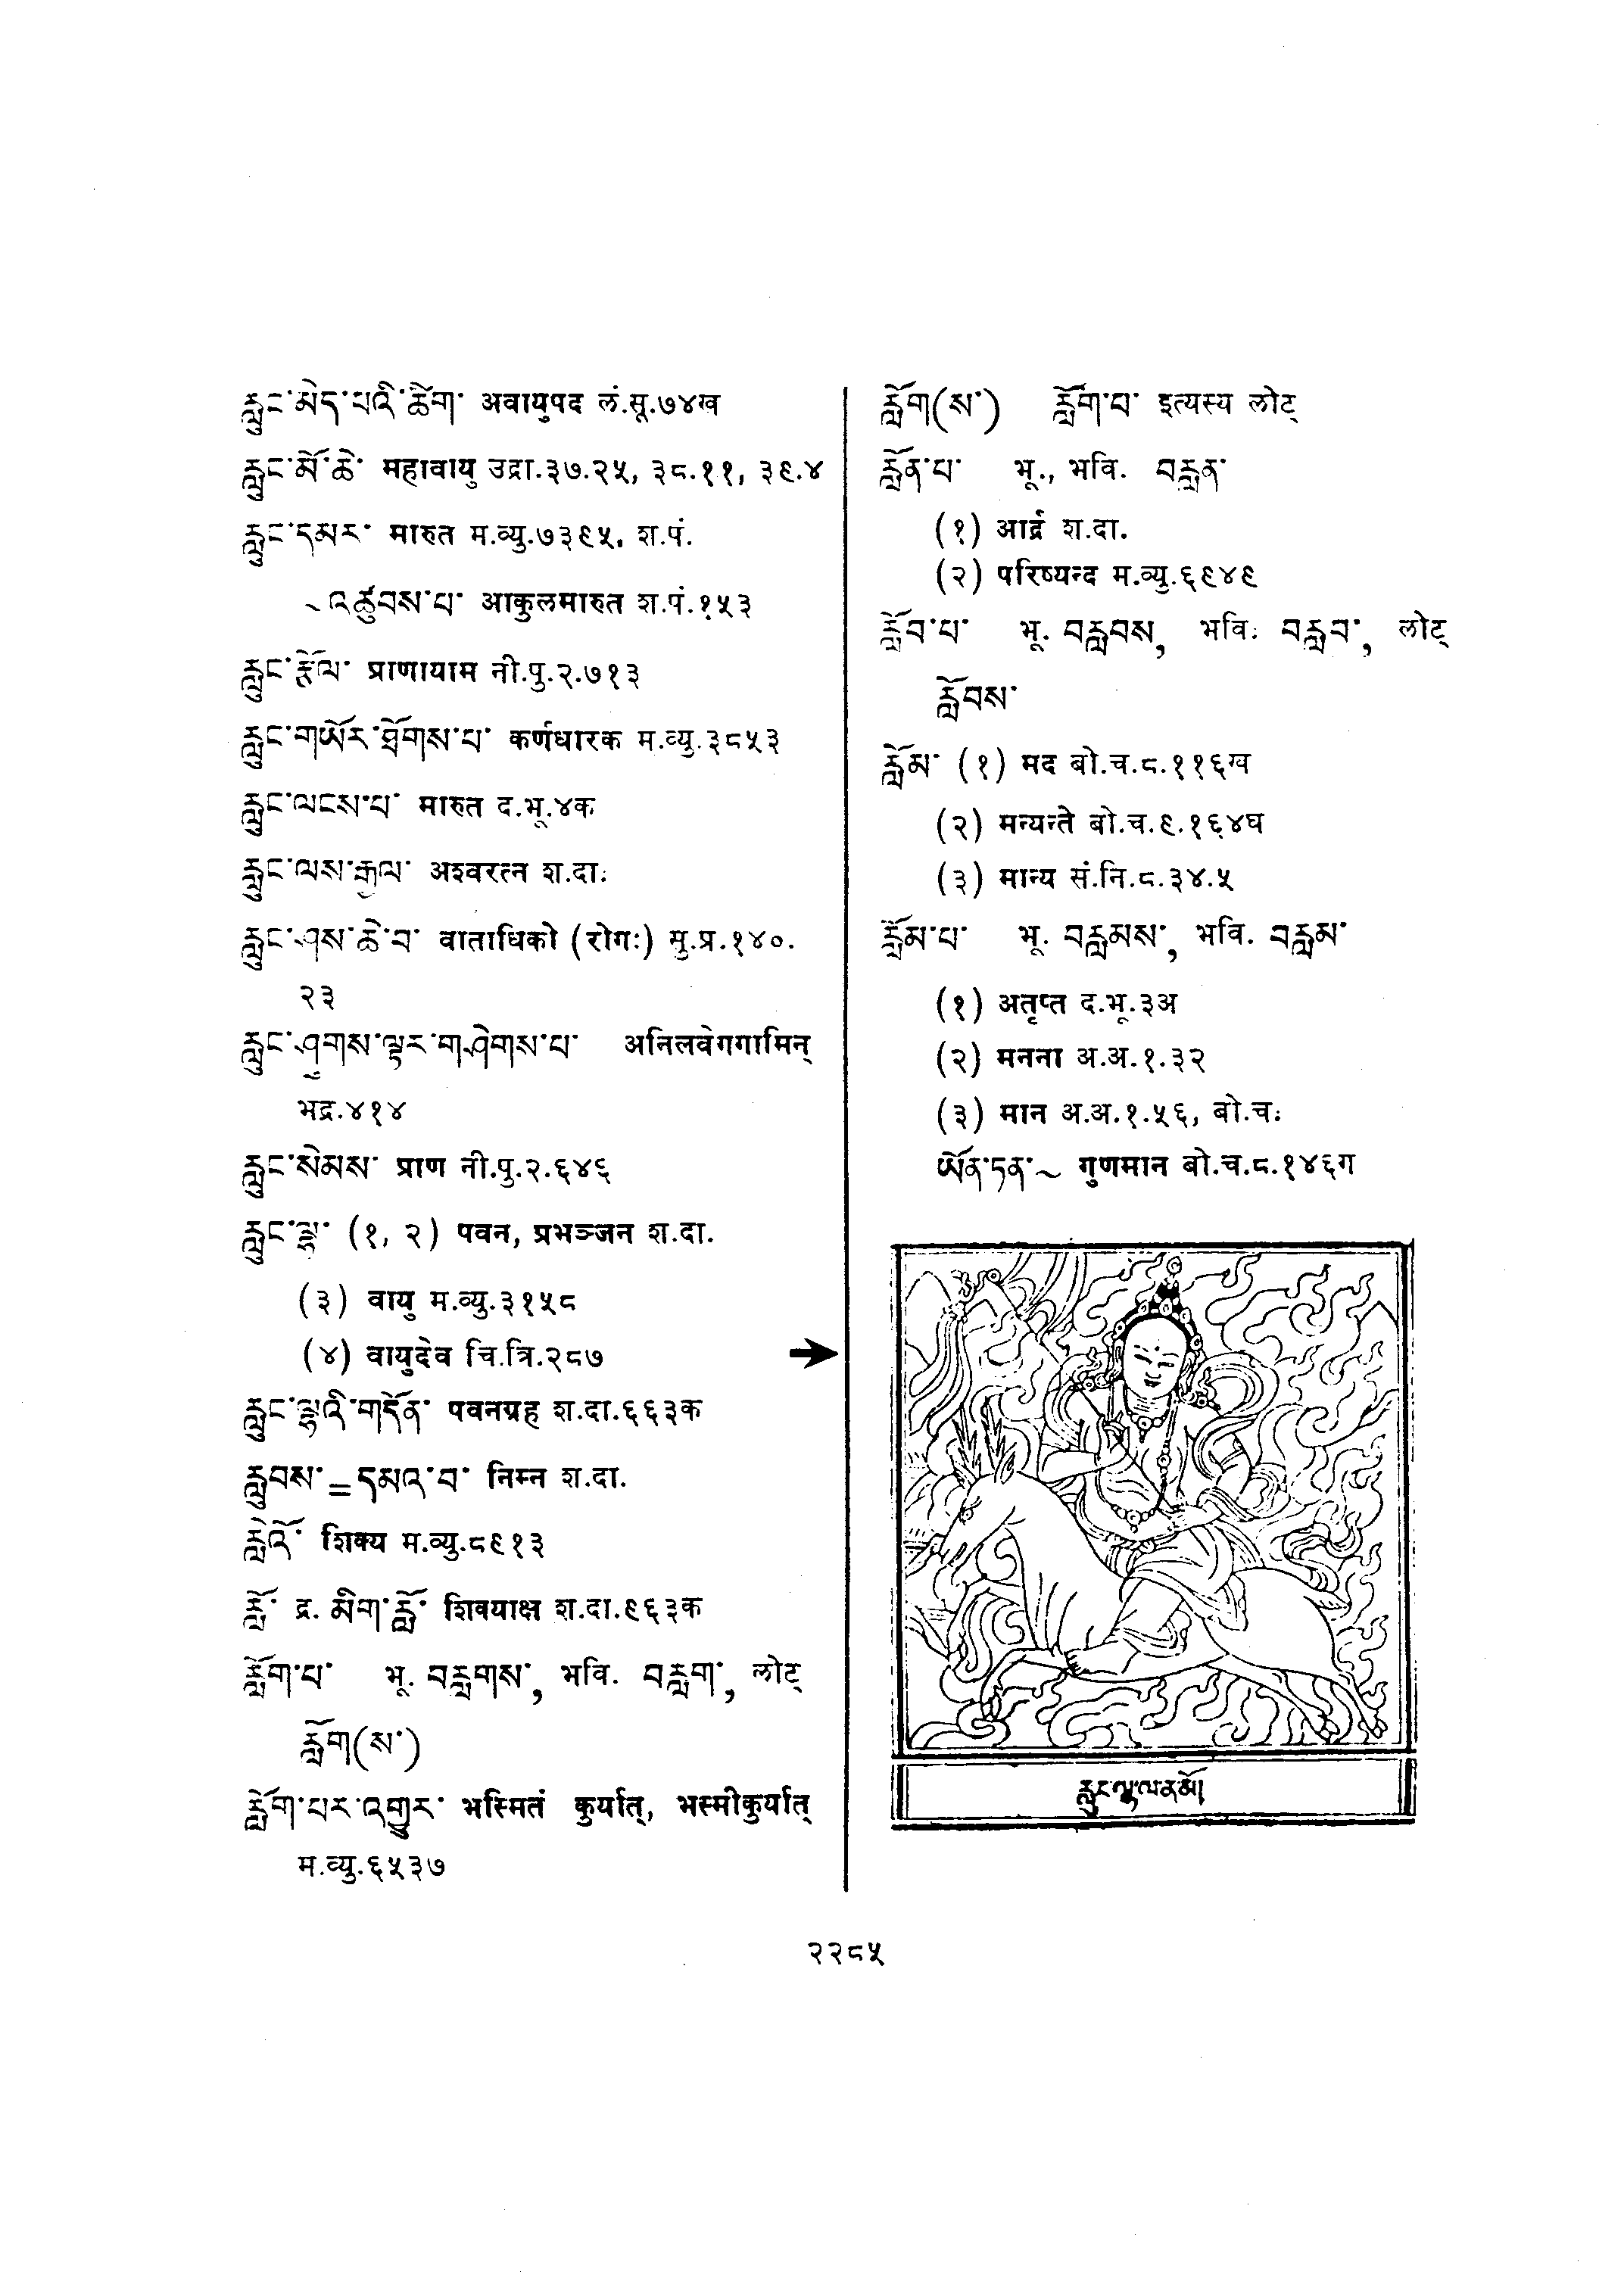 རླུང་མེད་པའི་ཚིག་ अवायुपद लं.सू.७४ख
རླུང་མོ་ཆེ་ महावायु उद्रा.३७.२५, ३८.११, ३९.४
རླུང་དམར་ मारुत म.व्यु.७३९५, श.पं.
~འཚུབས་པ་ आकुलमारुत श.पं.१५३
རླུང་རྩོལ་ प्राणायाम नी.पु.२.७१३
རླུང་གཡོར་ཐོགས་པ་ कर्णधारक म.व्यु.३८५३
རླུང་ལངས་པ་ मारुत द.भू.४क
རླུང་ལས་རྒྱལ་ अश्वरत्न श.दा.
རླུང་ཤས་ཆེ་བ་ वाताधिको (रोगः) मु.प्र.१४०.
२३
རླུང་ཤུགས་ལྟར་གཤེགས་པ་ अनिलवेगगामिन्
भद्र.४१४
རླུང་སེམས་ प्राण नी.पु.२.६४६
རླུང་ལྷ་ (१, २) पवन, प्रभञ्जन श.दा.
(३) वायु म.व्यु.३१५८
(४) वायुदेव चि.त्रि.२८७ ➔
རླུང་ལྷའི་གདོན་ पवनग्रह श.दा.६६३क
རླུབས་ = དམའ་བ་ निम्न श.दा.
རླེའོ་ शिक्य म.व्यु.८९१३
རློ་ द्र. མིག་རློ་ शिवयाक्ष श.दा.९६३क
རློག་པ་ भू. བརླགས་, भवि. བརླག་, लोट्
རློག(ས་)
རློག་པར་འགྱུར་ भस्मितं कुर्यात्, भस्मीकुर्यात्
म.व्यु.६५३७
རློག(ས་) རློག་པ་ इत्यस्य लोट्
རློན་པ་ भू., भवि. བརླན་
(१) आर्द्र श.दा.
(२) परिष्यन्द म.व्यु.६९४९
རློབ་པ་ भू. བརླབས, भवि. བརླབ་, लोट्
རློབས་
རློམ་ (१) मद बो.च.८.११६ख
(२) मन्यन्ते बो.च.९.१६४घ
(३) मान्य सं.नि.८.३४.५
རློམ་པ་ भू. བརླམས་, भवि. བརླམ་
(१) अतृप्त द.भू.३अ
(२) मनना अ.अ.१.३२
(३) मान अ.अ.१.५६, बो.च.
ཡོན་ཏན་~ गुणमान बो.च.८.१४६ग
རླུང་ལྷ་ལ་ན་མོ།
२२८५